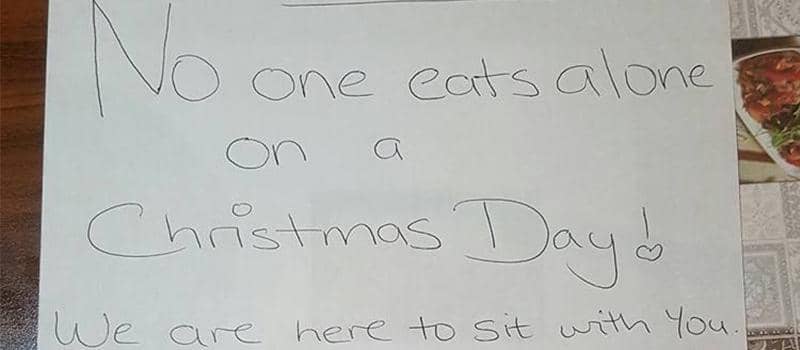 No one eats alone
on a
Christmas Day!
We are here to sit with You.